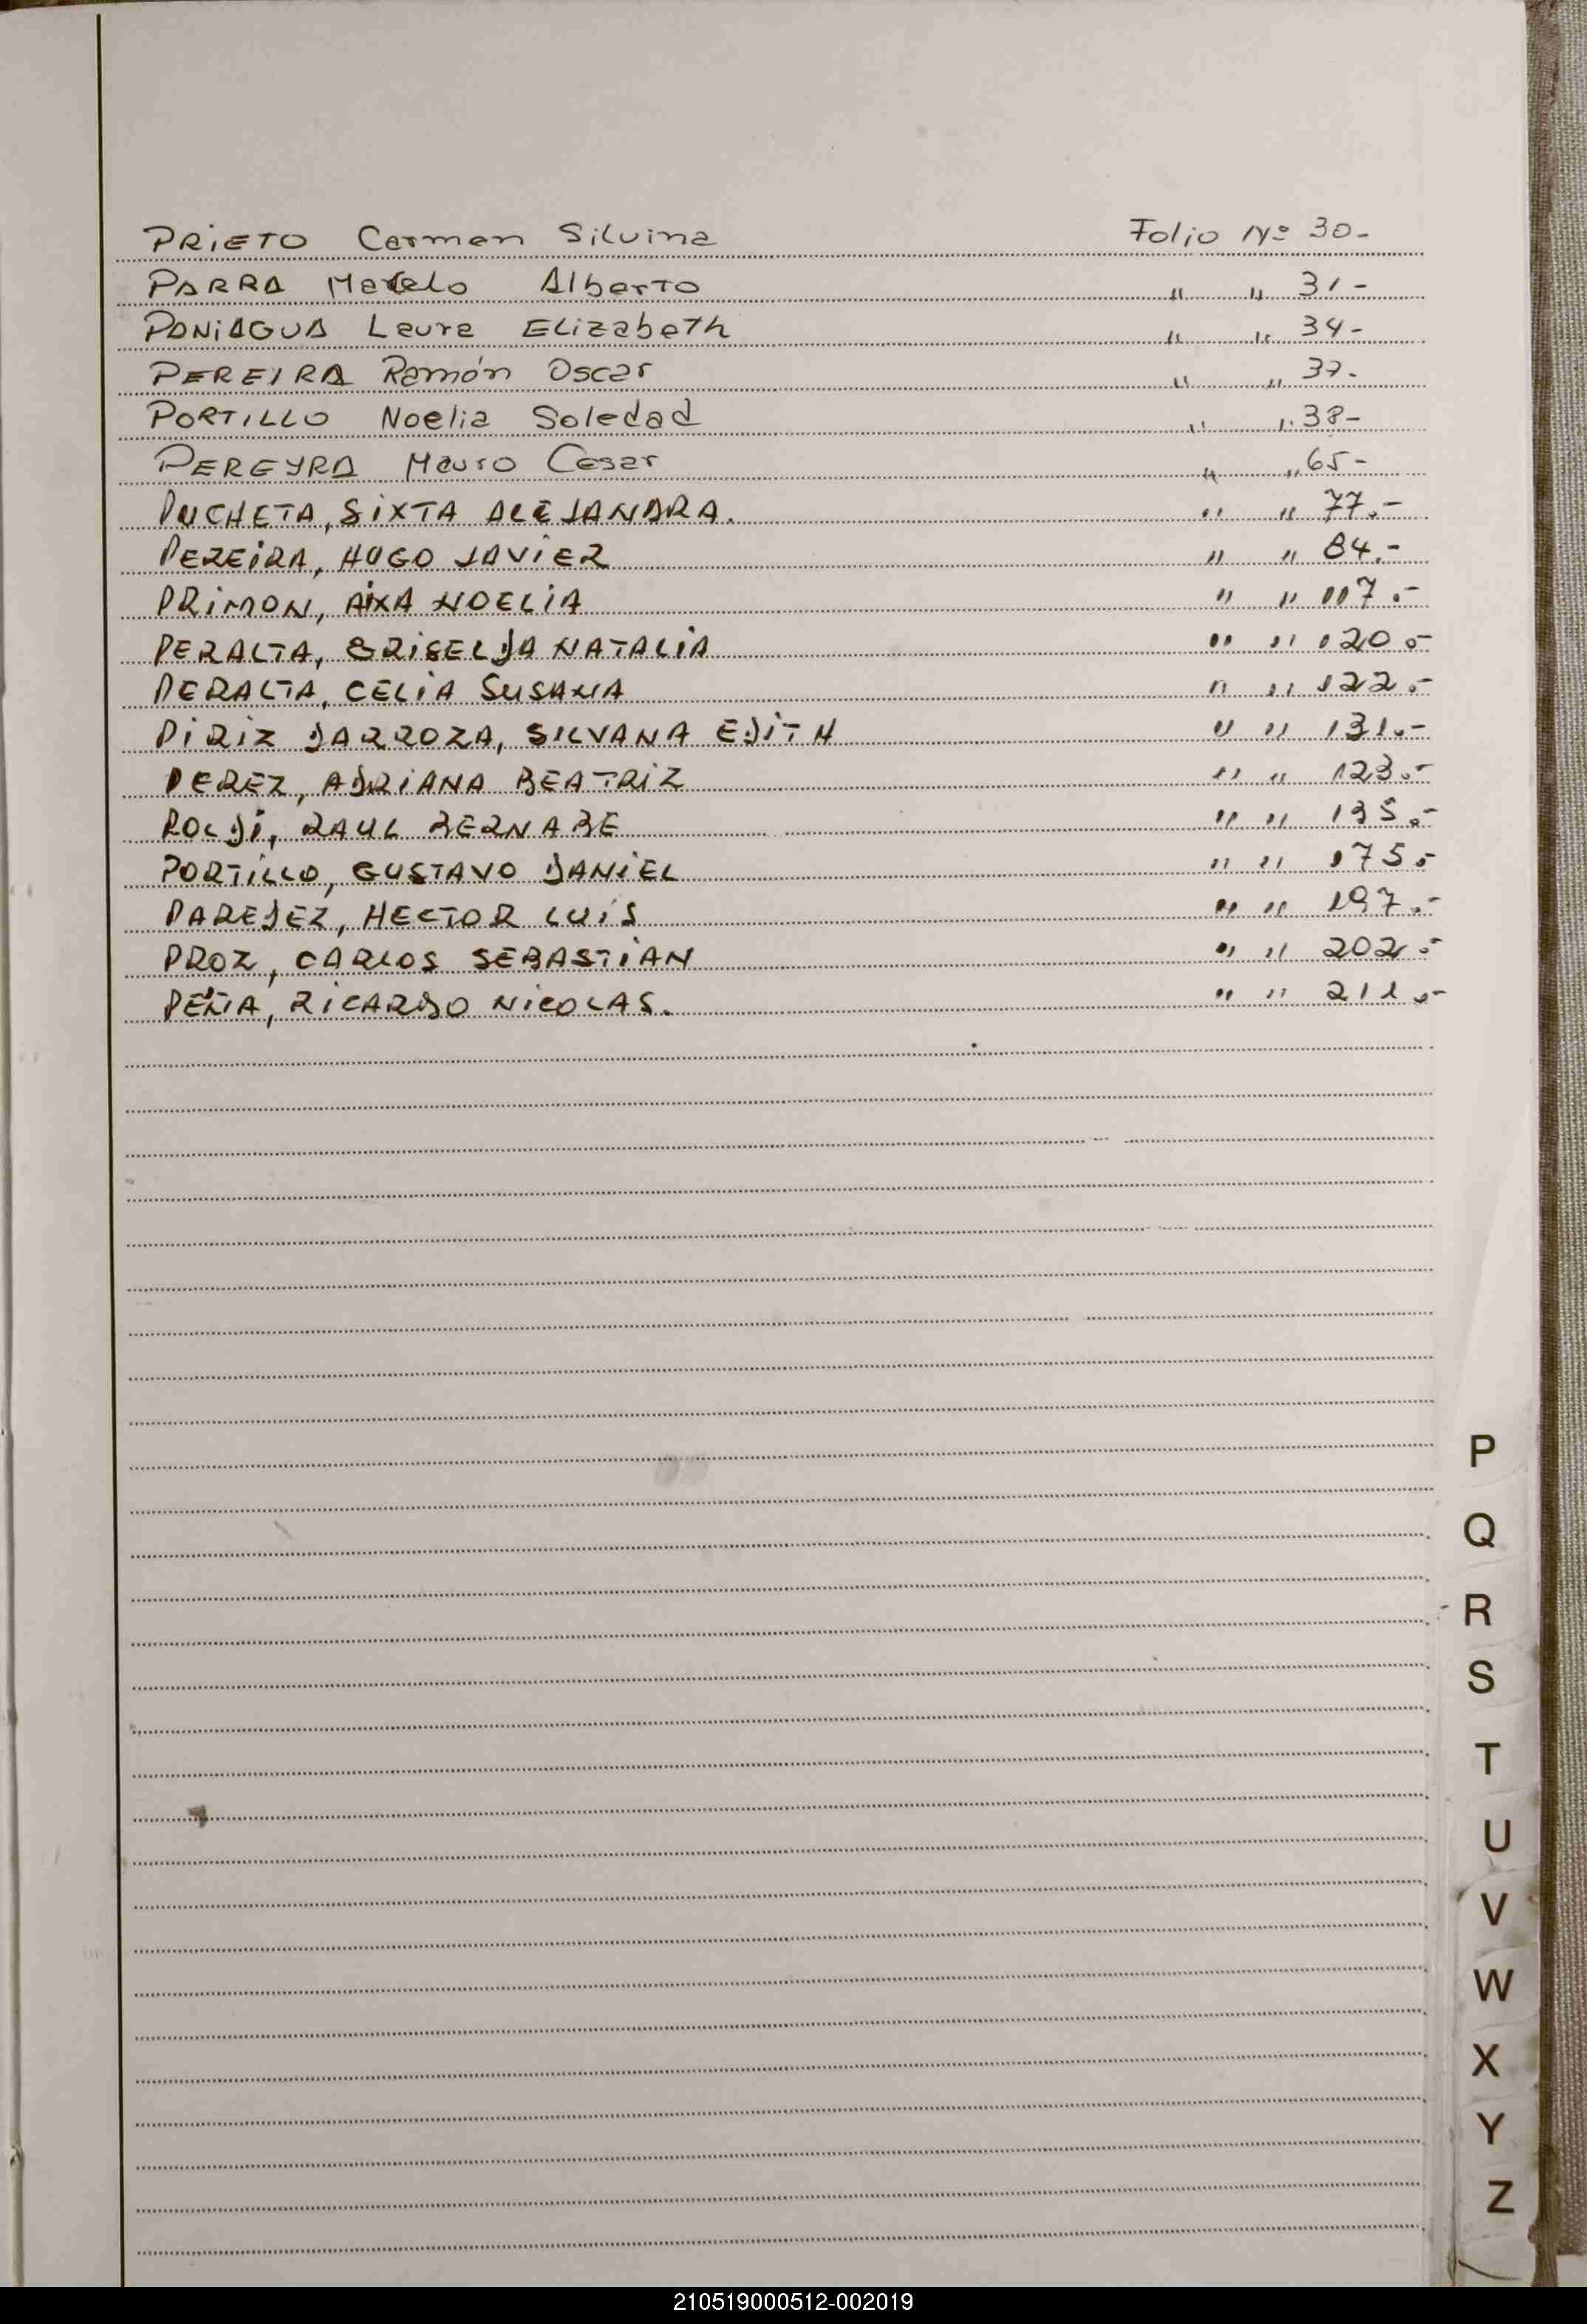 PRIETO Carmen Silvina Folio Nº 30-
PARRA Marcelo Alberto " " 31-
PANIAGUA Laura Elizabeth " " 34-
PEREIRA Ramón Oscar " " 37-
PORTILLO Noelia Soledad " " 38-
PEREYRA Mauro Cesar " " 65-
PUCHETA, SIXTA ALEJANDRA. " " 77.-
PEREIRA, HUGO JAVIER " " 84.-
PRIMON, AIXA NOELIA " " 117.-
PERALTA, GRISELDA NATALIA " " 120.-
PERALTA, CELIA SUSANA " " 122.-
PIRIZ DARROZA, SILVANA EDITH " " 131.-
PEREZ, ADRIANA BEATRIZ " " 123.-
POLDI, RAUL BERNABE " " 135.-
PORTILLO, GUSTAVO DANIEL " " 175.-
PAREDEZ, HECTOR LUIS " " 197.-
PROZ, CARLOS SEBASTIAN " " 202.-
PEÑA, RICARDO NICOLAS. " " 211.-
P
Q
R
S
T
U
V
W
X
Y
Z
210519000512-002019